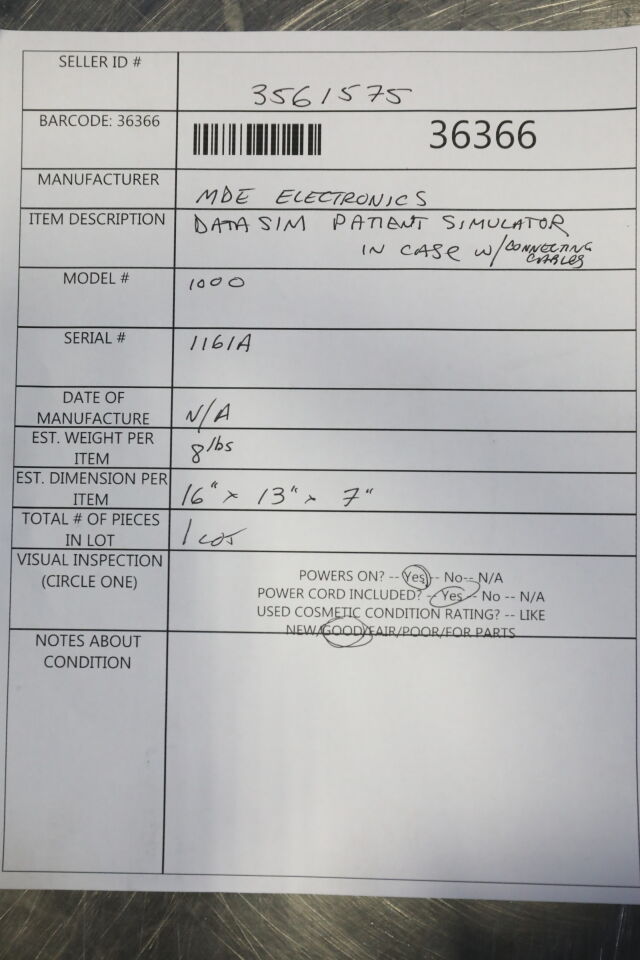 SELLER ID # 3561575
BARCODE: 36366 36366
MANUFACTURER MDE ELECTRONICS
ITEM DESCRIPTION DATA SIM PATIENT SIMULATOR
IN CASE W/CONNECTING
CABLES
MODEL # 1000
SERIAL # 1161A
DATE OF
MANUFACTURE N/A
EST. WEIGHT PER
ITEM 8 lbs
EST. DIMENSION PER
ITEM 16" x 13" x 7"
TOTAL # OF PIECES
IN LOT 1 LOT
VISUAL INSPECTION
(CIRCLE ONE)
POWERS ON? -- Yes -- No -- N/A
POWER CORD INCLUDED? -- Yes -- No -- N/A
USED COSMETIC CONDITION RATING? -- LIKE
NEW/GOOD/FAIR/POOR/FOR PARTS
NOTES ABOUT
CONDITION